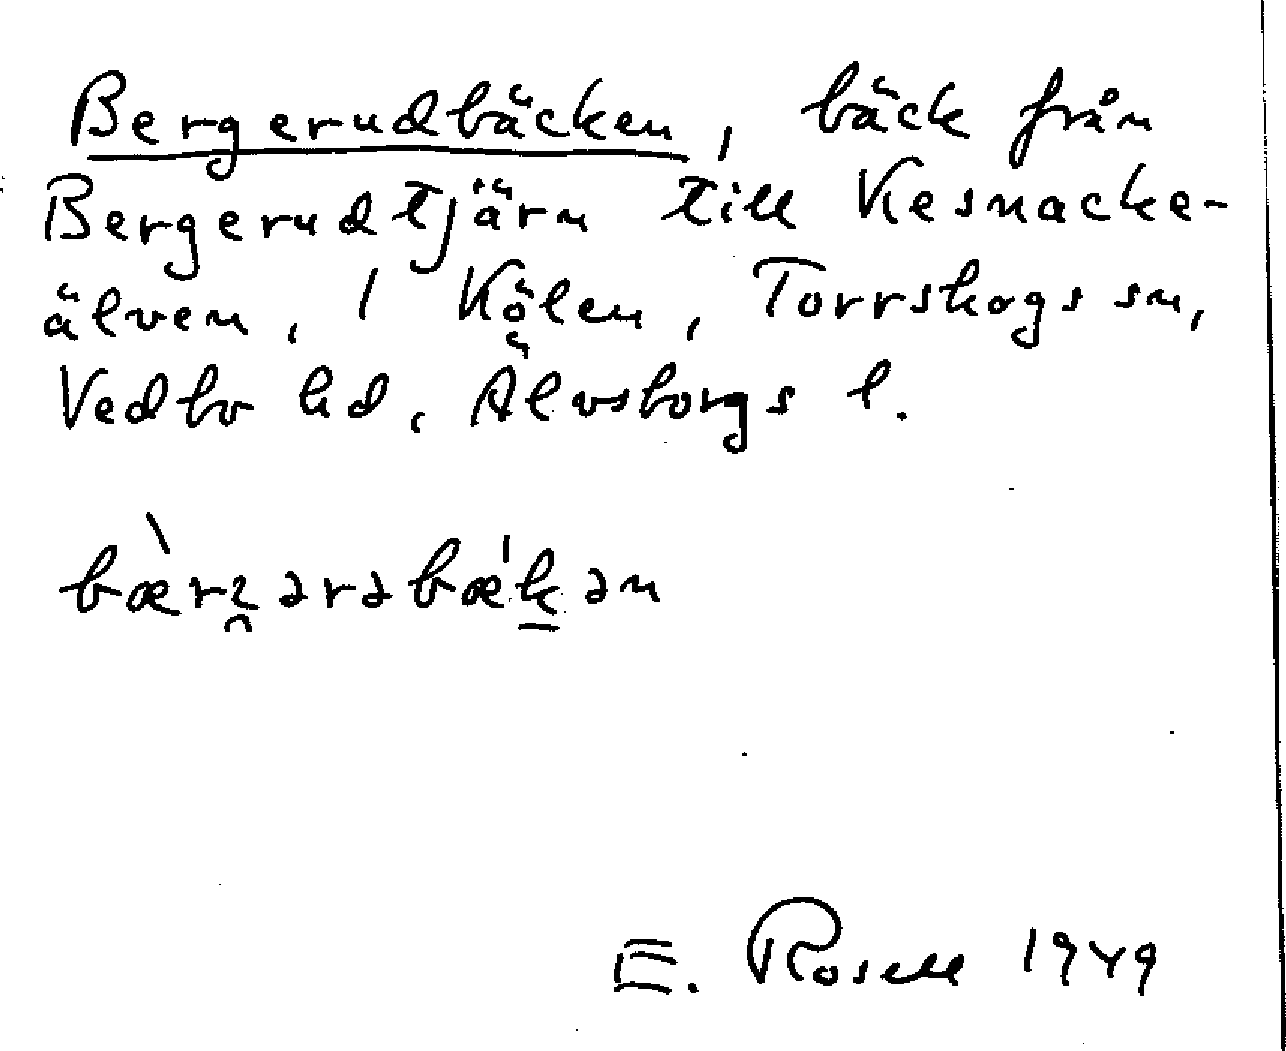 Bergerudbäcken, bäck från
Bergerudtjärn till Kesnacke-
älven, i Kölen, Torrskogs sn,
Vedbo hd, Älvsborgs l.
E. Rosell 1949